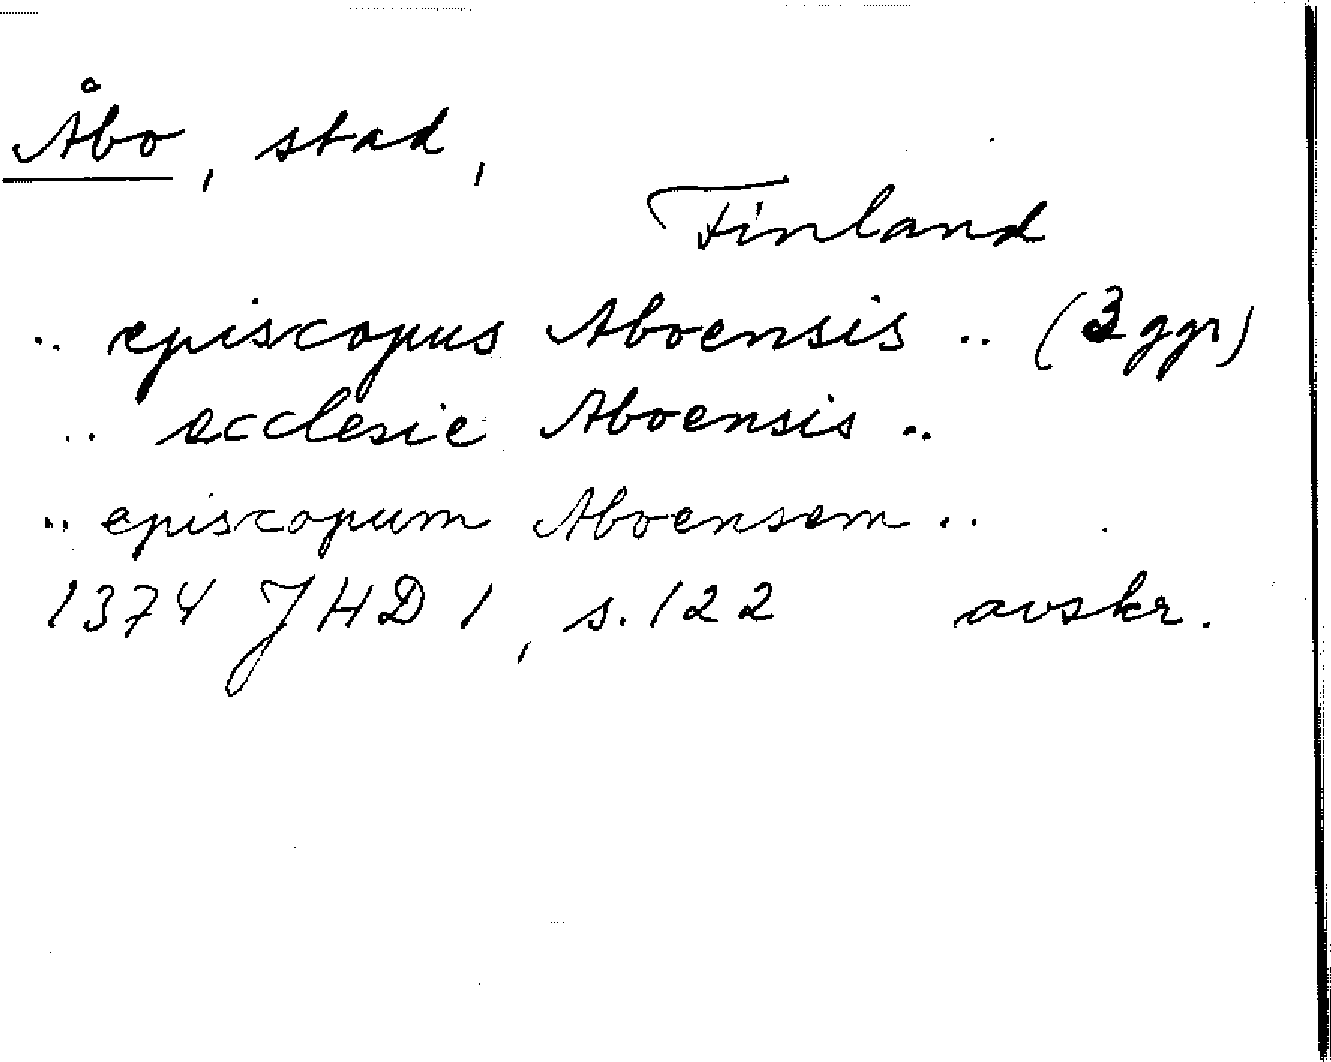 Åbo, stad,
Finland
.. episcopus Aboensis .. (3 ggr)
.. ecclesie Aboensis ..
.. episcopum Aboensem ..
1374 JHD 1, s. 122 avskr.